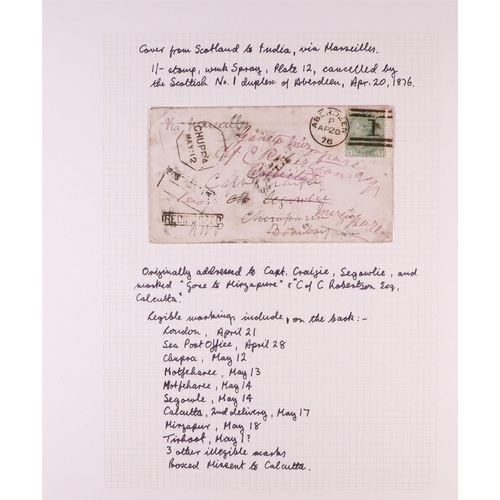 Cover from Scotland to India, via Marseilles.
1/- stamp, wmk Spray, Plate 12, cancelled by
the Scottish No. 1 duplex of Aberdeen, Apr. 20, 1876.
Via Marseilles
CHUPRA
MAY 12
ABERDEEN
P
AP 20
76
1
Gone to Mirzapure
C Robertson Esq
Calcutta
Capt
Segowlie
Bombay
Originally addressed to Capt. Craigie, Segowlie, and
marked "Gone to Mirzapure" & "C of C Robertson Esq,
Calcutta."
Legible markings include, on the back:-
London, April 21
Sea Post Office, April 28
Chupra, May 12
Motfeharee, May 13
Motfeharee, May 14
Segowle, May 14
Calcutta, 2nd delivery, May 17
Mirzapur, May 18
Tirhoot, May 1?
3 other illegible marks
Boxed Missent to Calcutta.